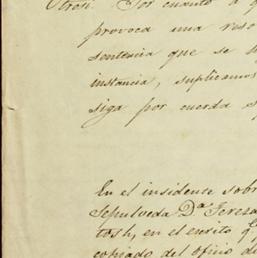 Otrosi. Por cuanto a q
provoca una reso
sentencia que se h
instancia, suplicamos
siga por cuerda s
En el insidente sobr
Sepulveda Dª Teresa
tosh, en el escrito q
copiado del oficio de